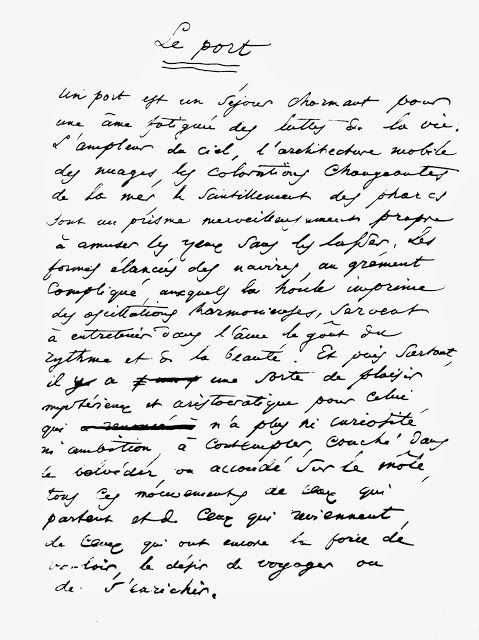 Le port
Un port est un séjour charmant pour
une âme fatiguée des luttes de la vie.
L'ampleur du ciel, l'architecture mobile
des nuages, les colorations changeantes
de la mer, le scintillement des phares
sont un prisme merveilleusement propre
à amuser les yeux sans les lasser. Les
formes élancées des navires, au gréement
compliqué, auxquels la houle imprime
des oscillations harmonieuses, servent
à entretenir dans l'âme le goût du
rythme et de la beauté. Et puis, surtout,
il y a une sorte de plaisir
mystérieux et aristocratique pour celui
qui n'a plus ni curiosité,
ni ambition, à contempler, couché dans
le belvéder ou accoudé sur le môle,
tous ces mouvements de ceux qui
partent et de ceux qui reviennent,
de ceux qui ont encore la force de
vouloir, le désir de voyager ou
de s'enrichir.